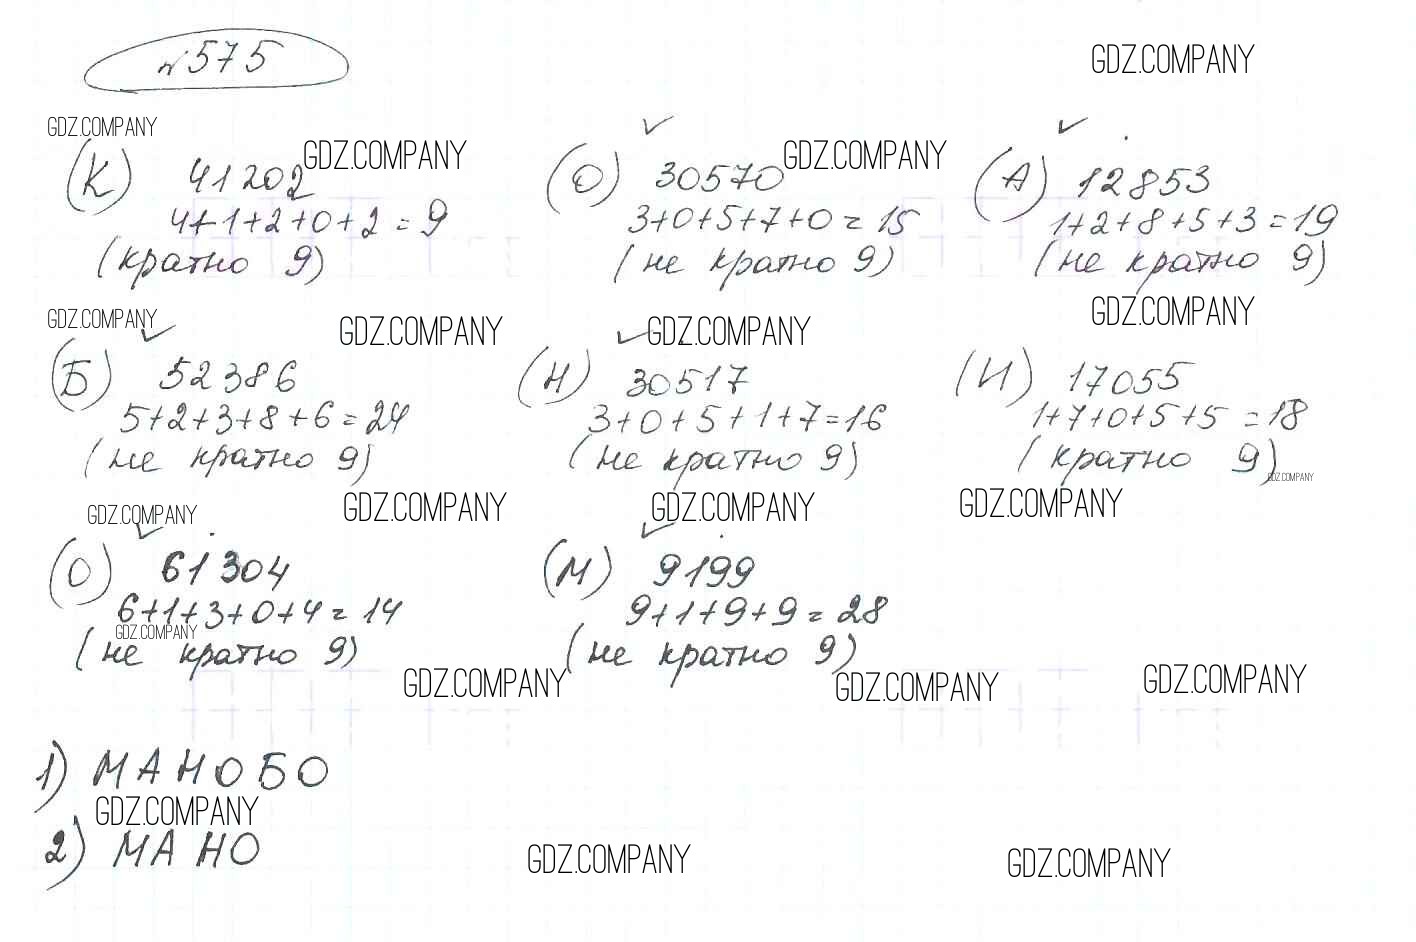 №575
GDZ.COMPANY
GDZ.COMPANY
GDZ.COMPANY
GDZ.COMPANY
(К) 41202
4+1+2+0+2=9
(кратно 9)
(О) 30570
3+0+5+7+0=15
(не кратно 9)
(А) 12853
1+2+8+5+3=19
(не кратно 9)
GDZ.COMPANY
GDZ.COMPANY
GDZ.COMPANY
GDZ.COMPANY
(Б) 52386
5+2+3+8+6=24
(не кратно 9)
(Н) 30517
3+0+5+1+7=16
(не кратно 9)
(И) 17055
1+7+0+5+5=18
(кратно 9)
GDZ.COMPANY
GDZ.COMPANY
GDZ.COMPANY
GDZ.COMPANY
GDZ.COMPANY
(О) 61304
6+1+3+0+4=14
GDZ.COMPANY
(не кратно 9)
(М) 9199
9+1+9+9=28
(не кратно 9)
GDZ.COMPANY
GDZ.COMPANY
GDZ.COMPANY
1) МАНОБО
GDZ.COMPANY
2) МАНО
GDZ.COMPANY
GDZ.COMPANY